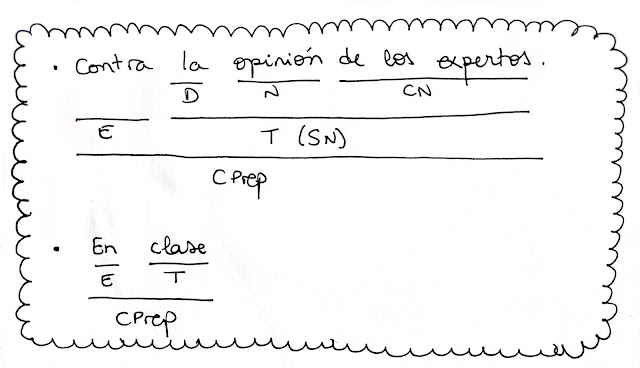 • Contra la opinión de los expertos.
D N CN
E T (SN)
CPrep
• En clase
E T
CPrep